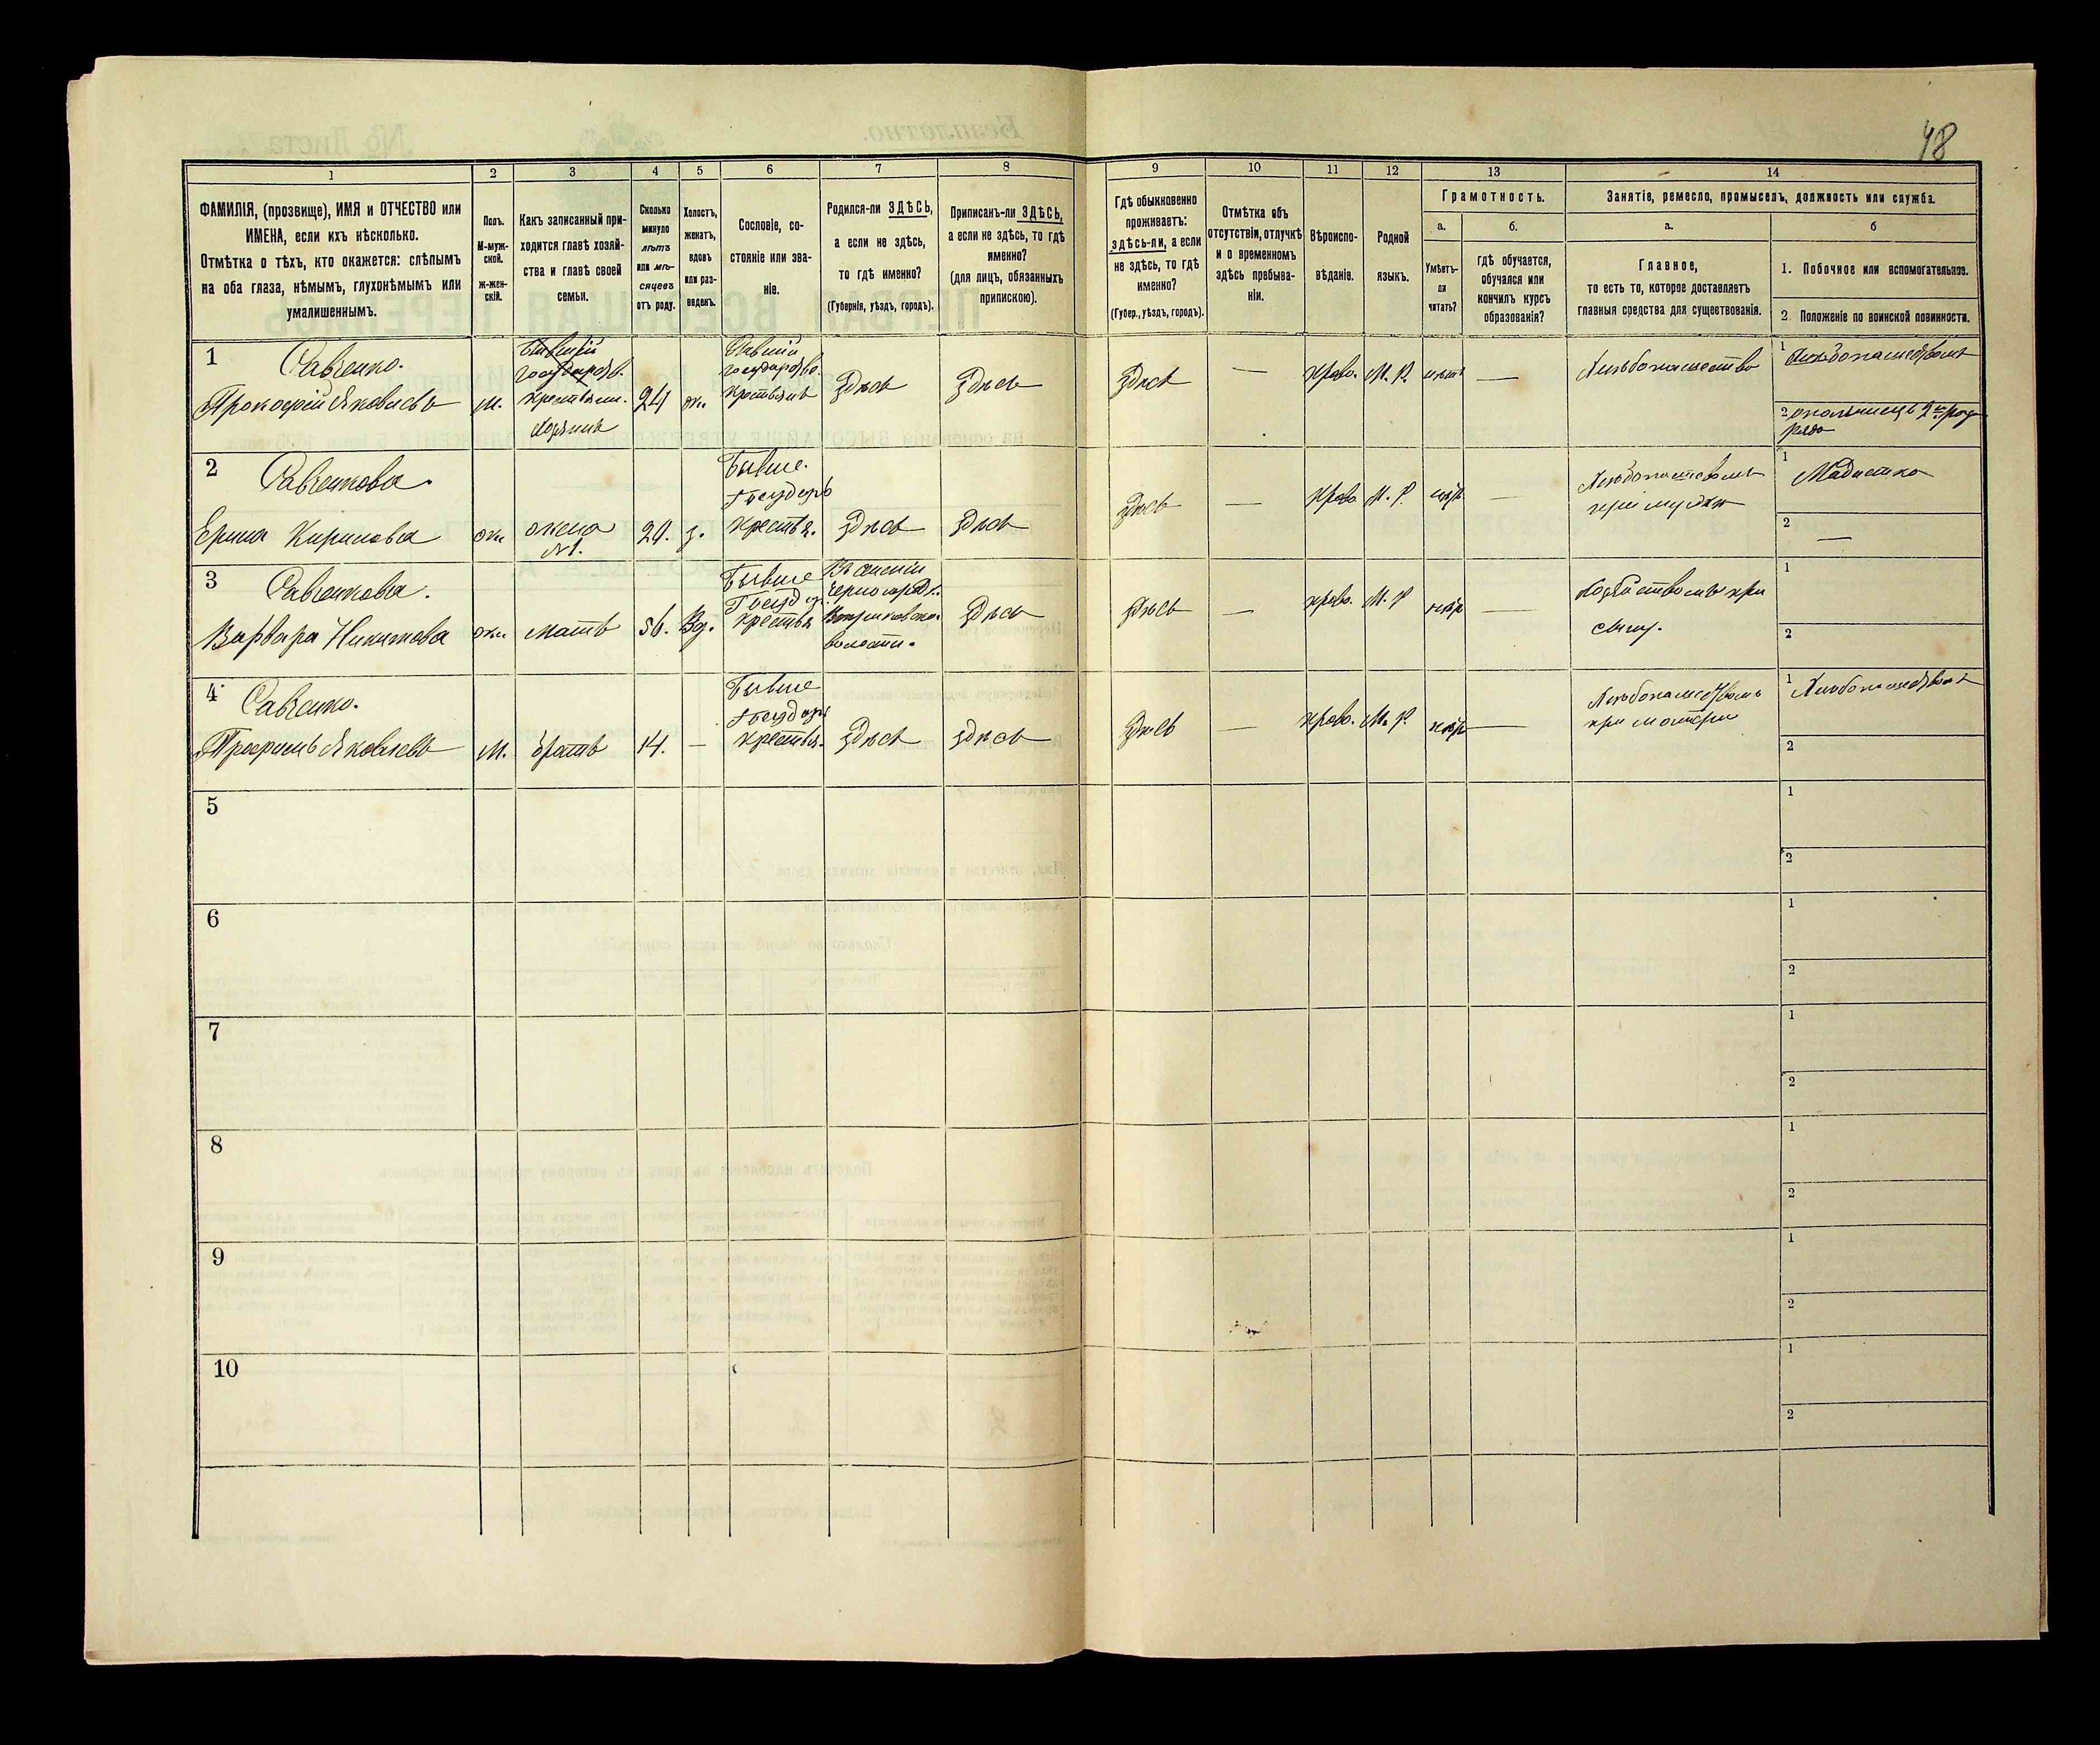 48
1 2 3 4 5 6 7 8 9 10 11 12 13 14
ФАМИЛІЯ, (прозвище), ИМЯ и ОТЧЕСТВО или
ИМЕНА, если ихъ нѣсколько.
Отмѣтка о тѣхъ, кто окажется: слѣпымъ
на оба глаза, нѣмымъ, глухонѣмымъ или
умалишеннымъ.
Полъ.
М-муж-
ской.
ж-жен-
скій.
Какъ записанный при-
ходится главѣ хозяй-
ства и главѣ своей
семьи.
Сколько
минуло
лѣтъ
или мѣ-
сяцевъ
отъ роду.
Холостъ,
женатъ,
вдовъ
или раз-
веденъ.
Сословіе, со-
стояніе или зва-
ніе.
Родился-ли ЗДѢСЬ,
а если не здѣсь,
то гдѣ именно?
(Губернія, уѣздъ, городъ).
Приписанъ-ли ЗДѢСЬ,
а если не здѣсь, то гдѣ
именно?
(для лицъ, обязанныхъ
припискою).
Гдѣ обыкновенно
проживаетъ:
здѣсь-ли, а если
не здѣсь, то гдѣ
именно?
(Губер., уѣздъ, городъ).
Отмѣтка объ
отсутствіи, отлучкѣ
и о временномъ
здѣсь пребыва-
ніи.
Вѣроиспо-
вѣданіе.
Родной
языкъ.
Грамотность.
а.
Умѣетъ-
ли
читать?
б.
гдѣ обучается,
обучался или
кончилъ курсъ
образованія?
Занятіе, ремесло, промыселъ, должность или служба.
а.
Главное,
то есть то, которое доставляетъ
главныя средства для существованія.
б
1. Побочное или вспомогательное.
2. Положеніе по воинской повинности.
1
Савченко.
Прокофій Яковлевъ
м.
Бывшій
государств.
крестьян.
Хозяинъ
24
ж.
Бывшій
государство.
Крестьянъ
Здѣсь
Здѣсь
Здѣсь
—
право.
М. Р.
нѣтъ
—
Хлѣбопашество
1 Хлѣбопашествомъ
2 ополченецъ 2го раз
ряда
2
Савченкова.
Ерина Кирилова
ж.
жена
№1.
20.
з.
Бывше.
Государ
крестья.
Здѣсь
Здѣсь
Здѣсь
—
право
М. Р.
нѣт
—
Хлѣбопашествомъ
при мужѣ
1
2 —
3
Савченкова.
Варвара Никитова
ж.
мать
56.
Вд.
Бывше
Государ.
крестья
волости.
Здѣсь
Здѣсь
—
право.
М. Р
нѣт
—
Хозяйствомъ при
сыну.
1
2
4
Савченко.
Трофимъ Яковлевъ
М.
братъ
14.
—
Бывше
Государ
крестья.
Здѣсь
здѣсь
Здѣсь
—
право.
М. Р.
нѣт
—
Хлѣбопашествомъ
при матери
1 Хлѣбопашествомъ
2
5
1
2
6
1
2
7
1
2
8
1
2
9
1
2
10
1
2